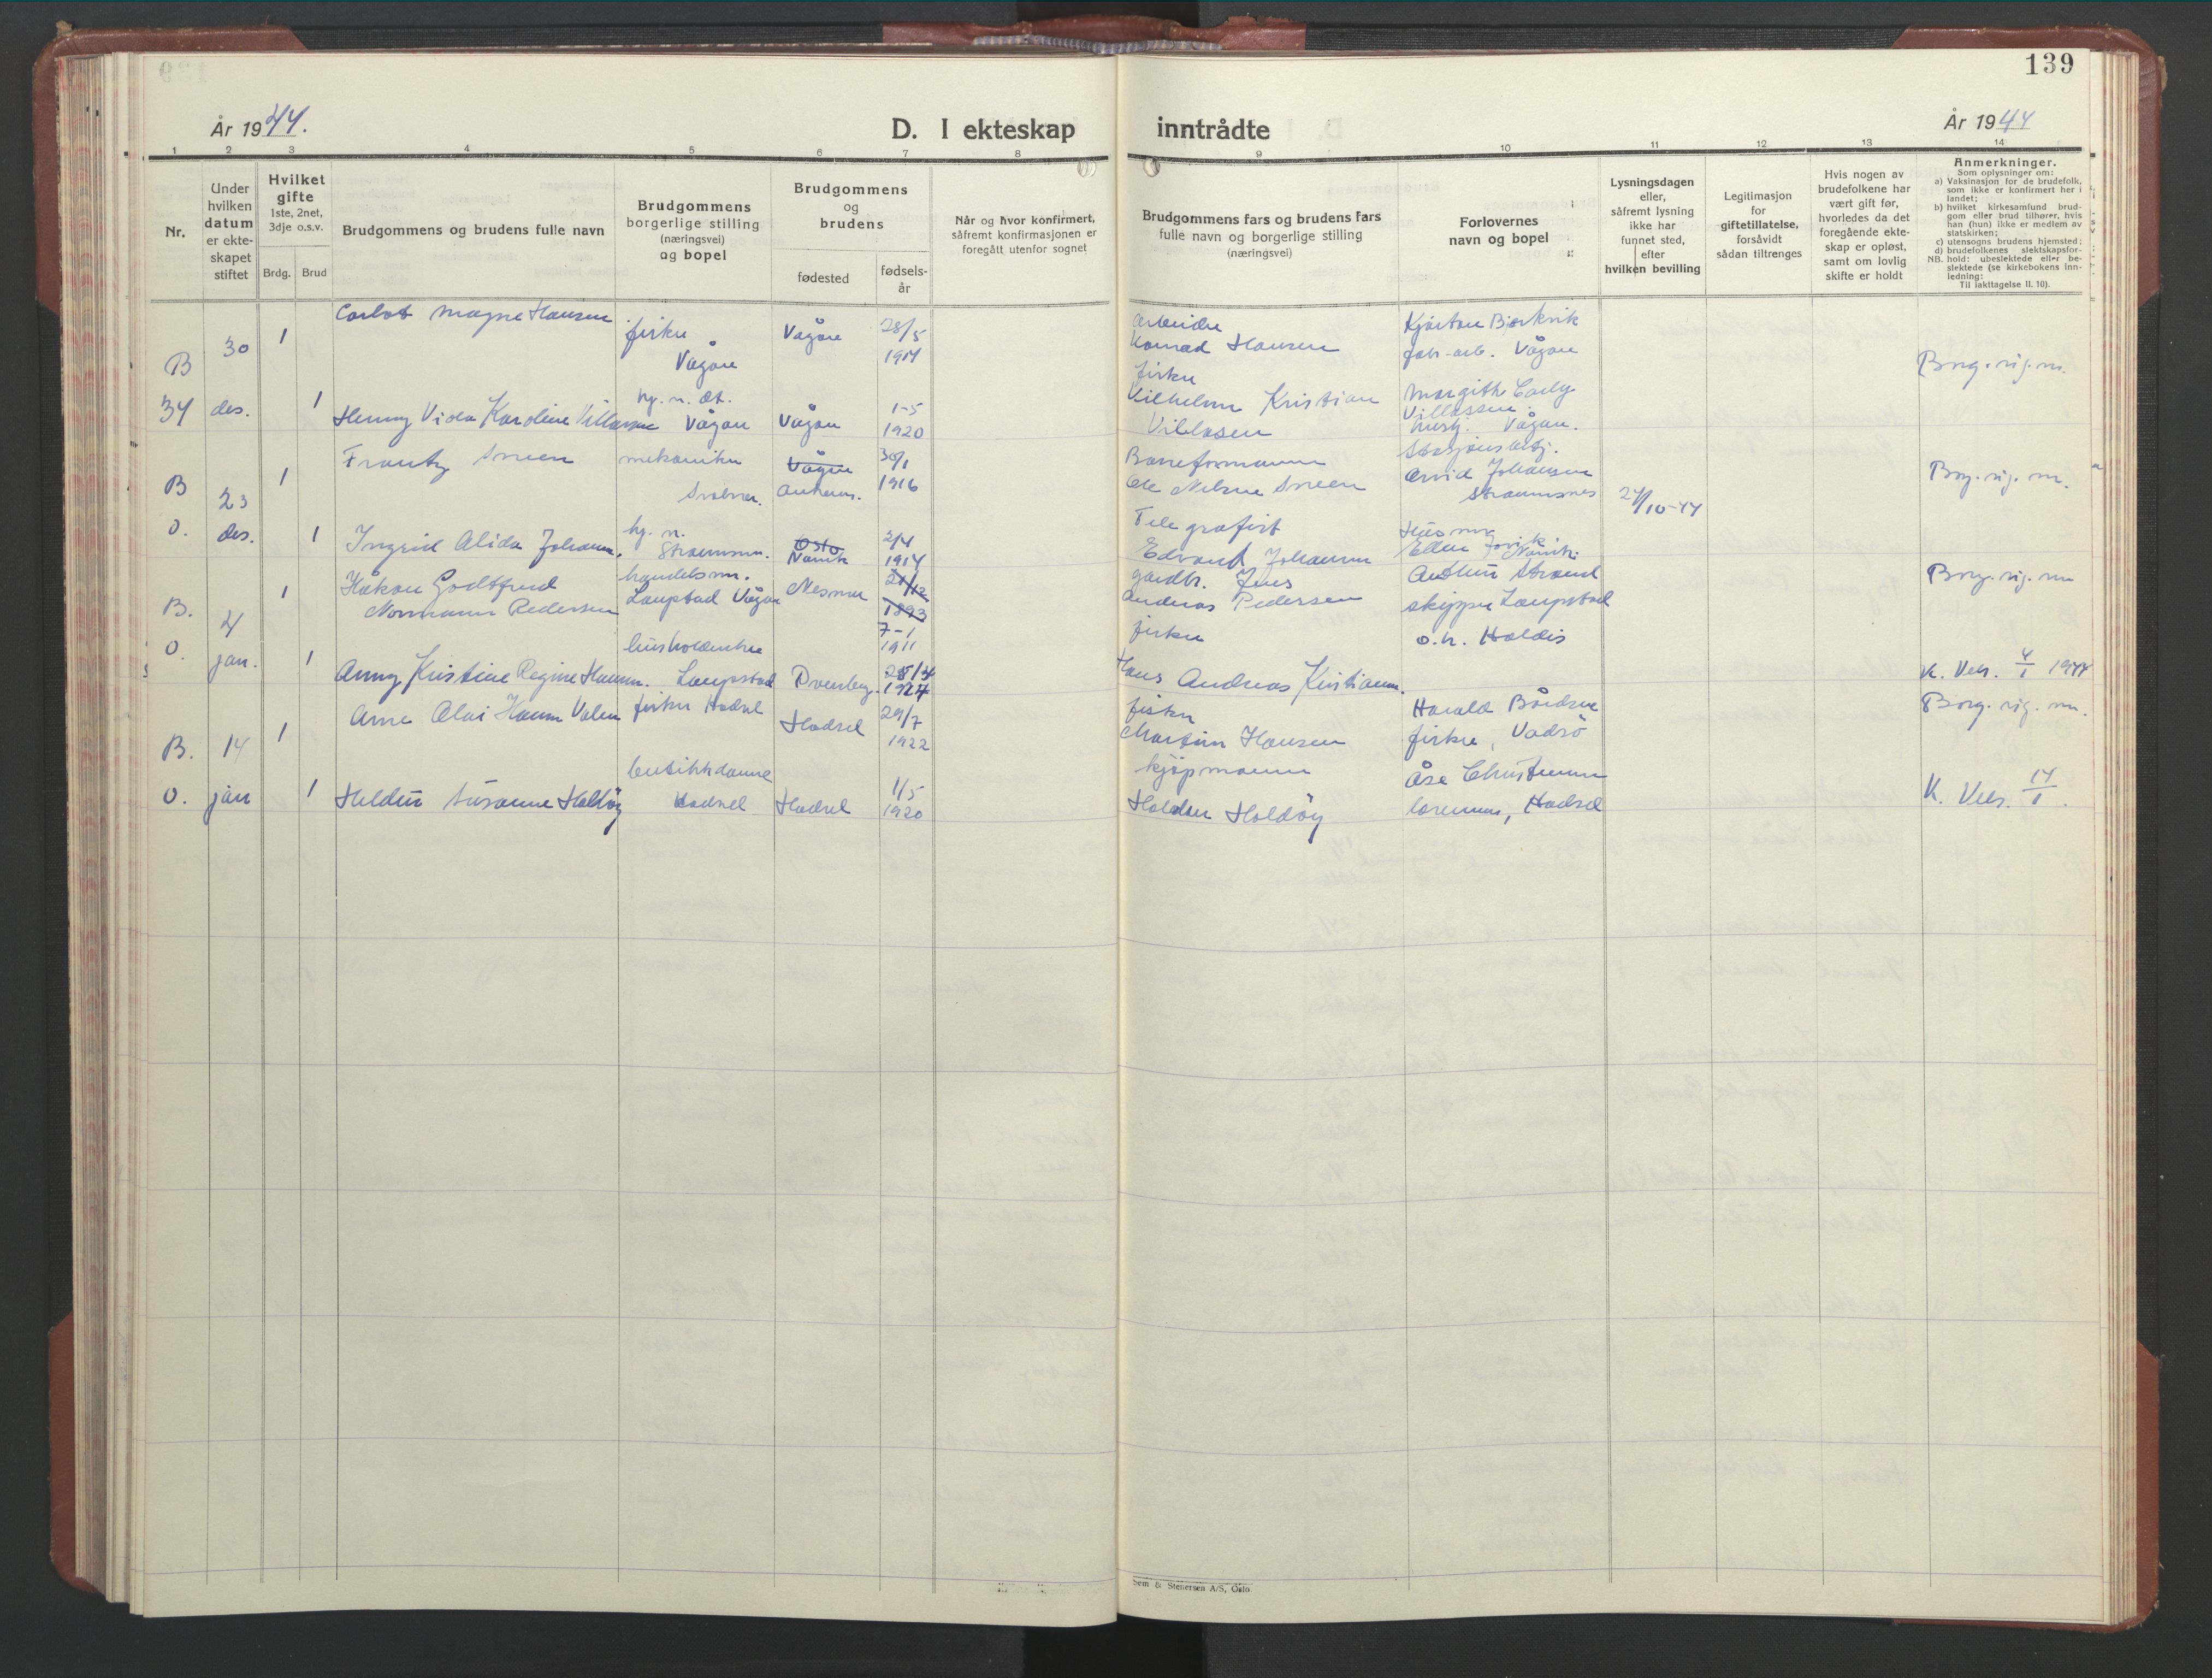 139
År 1944.
D. I ekteskap inntrådte
År 1944
1 2 3 4 5 6 7 8 9 10 11 12 13 14
Nr.
Under
hvilken
datum
er ekte-
skapet
stiftet
Hvilket
gifte
1ste, 2net,
3dje o.s.v.
Brdg.
Brud
Brudgommens og brudens fulle navn
Brudgommens
borgerlige stilling
(næringsvei)
og bopel
Brudgommens
og
brudens
fødested
fødsels-
år
Når og hvor konfirmert,
såfremt konfirmasjonen er
foregått utenfor sognet
Brudgommens fars og brudens fars
fulle navn og borgerlige stilling
(næringsvei)
Forlovernes
navn og bopel
Lysningsdagen
eller,
såfremt lysning
ikke har
funnet sted,
efter
hvilken bevilling
Legitimasjon
for
giftetillatelse,
forsåvidt
sådan tiltrenges
Hvis nogen av
brudefolkene har
vært gift før,
hvorledes da det
foregående ekte-
skap er opløst,
samt om lovlig
skifte er holdt
Anmerkninger.
Som oplysninger om:
a) Vaksinasjon for de brudefolk,
som ikke er konfirmert her i
landet;
b) hvilket kirkesamfund brud-
gom eller brud tilhører, hvis
han (hun) ikke er medlem av
statskirken;
c) utensogns brudens hjemsted;
d) brudefolkenes slektskapsfor-
NB. hold: ubeslektede eller be-
slektede (se kirkebokens inn-
ledning:
Til iakttagelse II. 10).
B
34
30
des.
1
Magne Hansen
fisker
Vågan
Vågan
28/5
1914
Arbeider
Konrad Hansen
Kjartan Bjerkvik
fabr.arb. Vågan
Borg. vig. m.
1
Henny Viola Karoline Villassen
Vågan
Vågan
1-5
1920
fisker
Vilhelm Kristian
Villasen
Margith Carly
Villassen
Vågan.
B
O.
23
des.
1
Frantz Sneen
mekaniker
Svolvær.
Vågan
30/1
1916
Baneformann
Ole Nelsen Sneen
Arvid Johansen
Straumsnes
24/10-44
Borg. vig. m.
1
Ingrid Alida Johann.
Straumsn.
Oslo
Narvik
2/4
1914
Telegrafist
Edvard Johansen
Husmor
Ellen
Narvik.
B.
O.
4
jan.
1
Håkon Godtfred
Normann Pedersen
handelsm.
Laupstad Vågan
Nesna
21/12
1893
7-1
1911
gårdbr. Jens
Andreas Pedersen
Arthur Strand
skipper Laupstad
o.h. Haldis
Borg. vig. m
1
Anny Kristine Regine Hansen.
husholderske
Laupstad
Dverberg.
1924
fisker
Hans Andreas Kristiansen.
K. Vels. 4/1 1944
B.
O.
14
jan
1
Arne Olai Hansen Valen
fisker Hadsel
Hadsel
29/7
1922
fisker
Martin Hansen
Harald Bårdsen
fisker, Vadsö
Borg. vig. m.
1
Heldur Susanne Haldöy
butikkdame
Hadsel
Hadsel
1/5
1920
kjøpmann
Haldor Holdöy
Åse Christensen
Hadsel
K. Vels. 14/1.
Sem & Stenersen A/S, Oslo